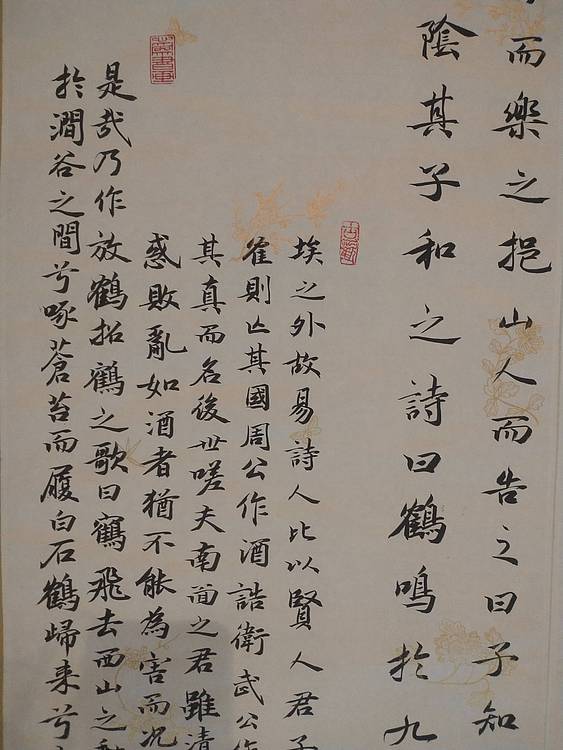 而樂之挹山人而告之曰子知
陰其子和之詩曰鶴鳴於九
埃之外故易詩人比以賢人君子
隺則亡其國周公作酒誥衛武公作
其真而名後世嗟夫南面之君雖清
惑敗亂如酒者猶不能為害而況
是哉乃作放鶴招鶴之歌曰鶴飛去西山之
於澗谷之間兮啄蒼苔而履白石鶴歸来兮